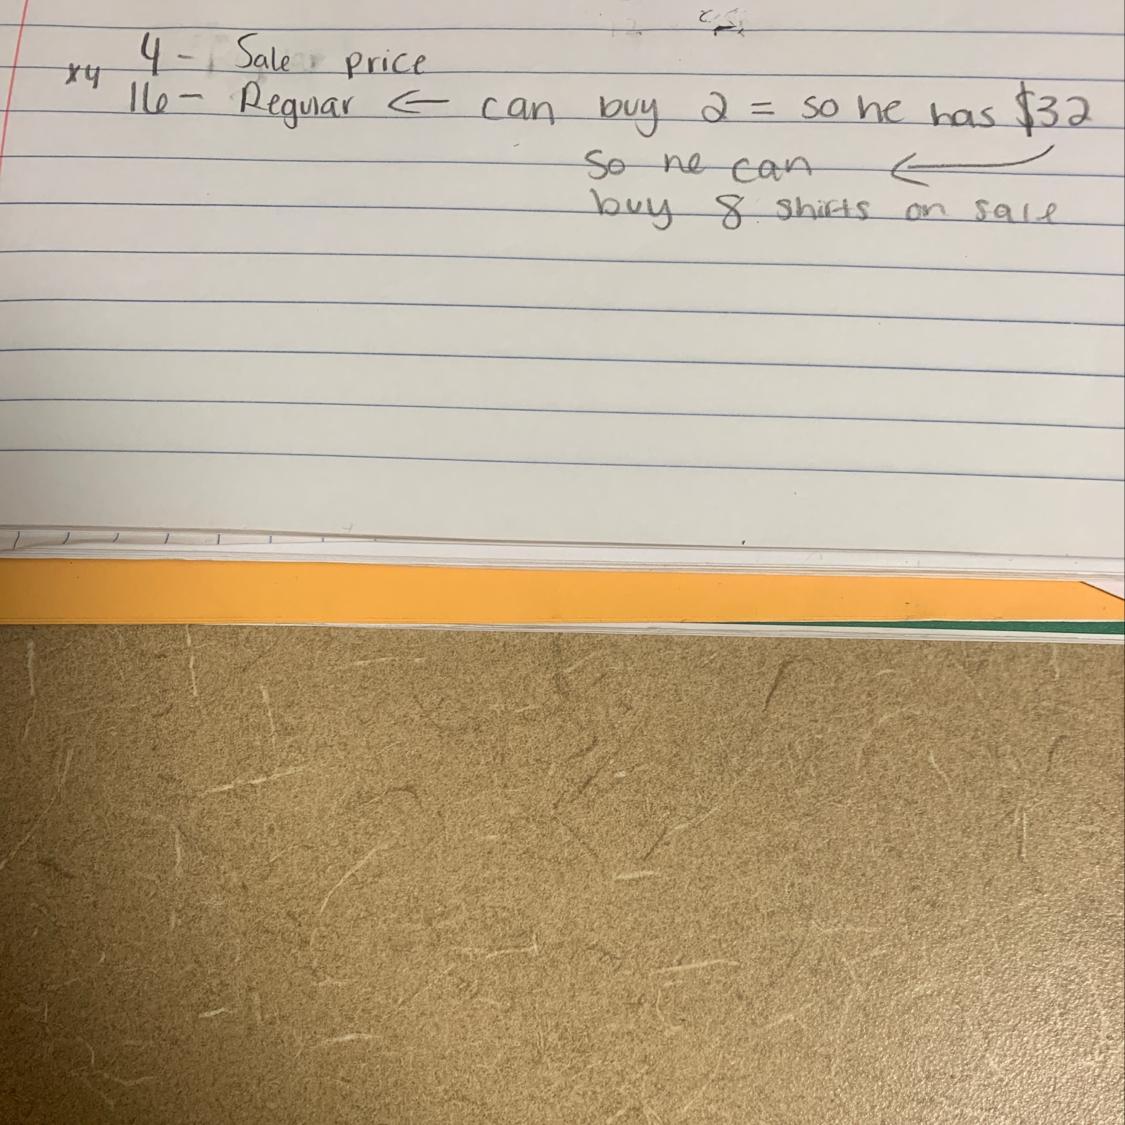 x4 4 - Sale price
16 - Regular ← can buy 2 = so he has $32
so he can ←
buy 8 shirts on sale